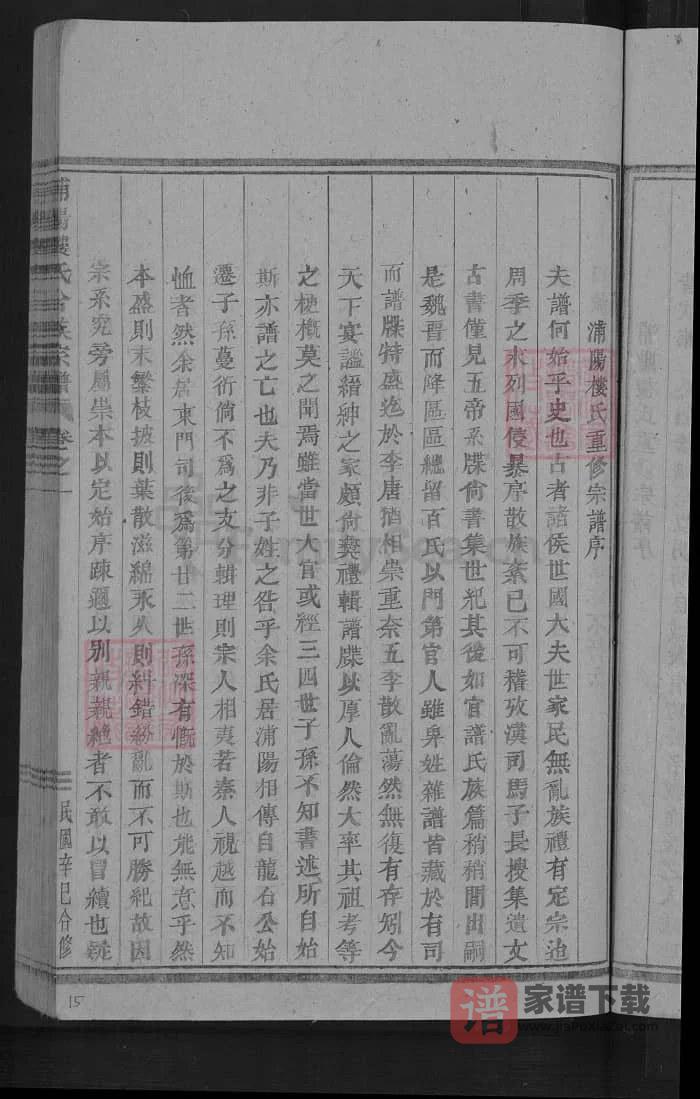 浦陽樓氏重修宗譜序
夫譜何始乎史也古者諸侯世國大夫世家民無亂族禮有定宗迨
周季之末列國侵暴序散族紊已不可稽攷漢司馬子長搜集遺文
古書僅見五帝系牒尙書集世紀其後如官譜氏族篇稍稍間出嗣
是魏晋而降區區總留百氏以門第官人雖卑姓雜譜皆藏於有司
而譜牒特盛迄於李唐猶相崇重奈五季散亂蕩然無復有存矧今
天下宴謐縉紳之家頗尙彝禮輯譜牒以厚人倫然大率其祖考等
之梗槪莫之聞焉雖當世大官或經三四世子孫不知書述所自始
斯亦譜之亡也夫乃非子姓之咎乎余氏居浦陽相傳自龍石公始
遷子孫蔓衍倘不爲之支分輯理則宗人相夷若秦人視越而不知
恤者然余居東門司後爲第廿二世孫深有慨於斯也能無意乎然
本盛則末繁枝披則葉散滋綿永久則糾錯紛亂而不可勝紀故因
宗系究旁屬崇本以定始序疎邇以別親親絕者不敢以冒續也疑
浦陽樓氏合族宗譜
卷之一
民國辛巳合修
15
谱
家谱下载
www.jiaPuXiaZai.com